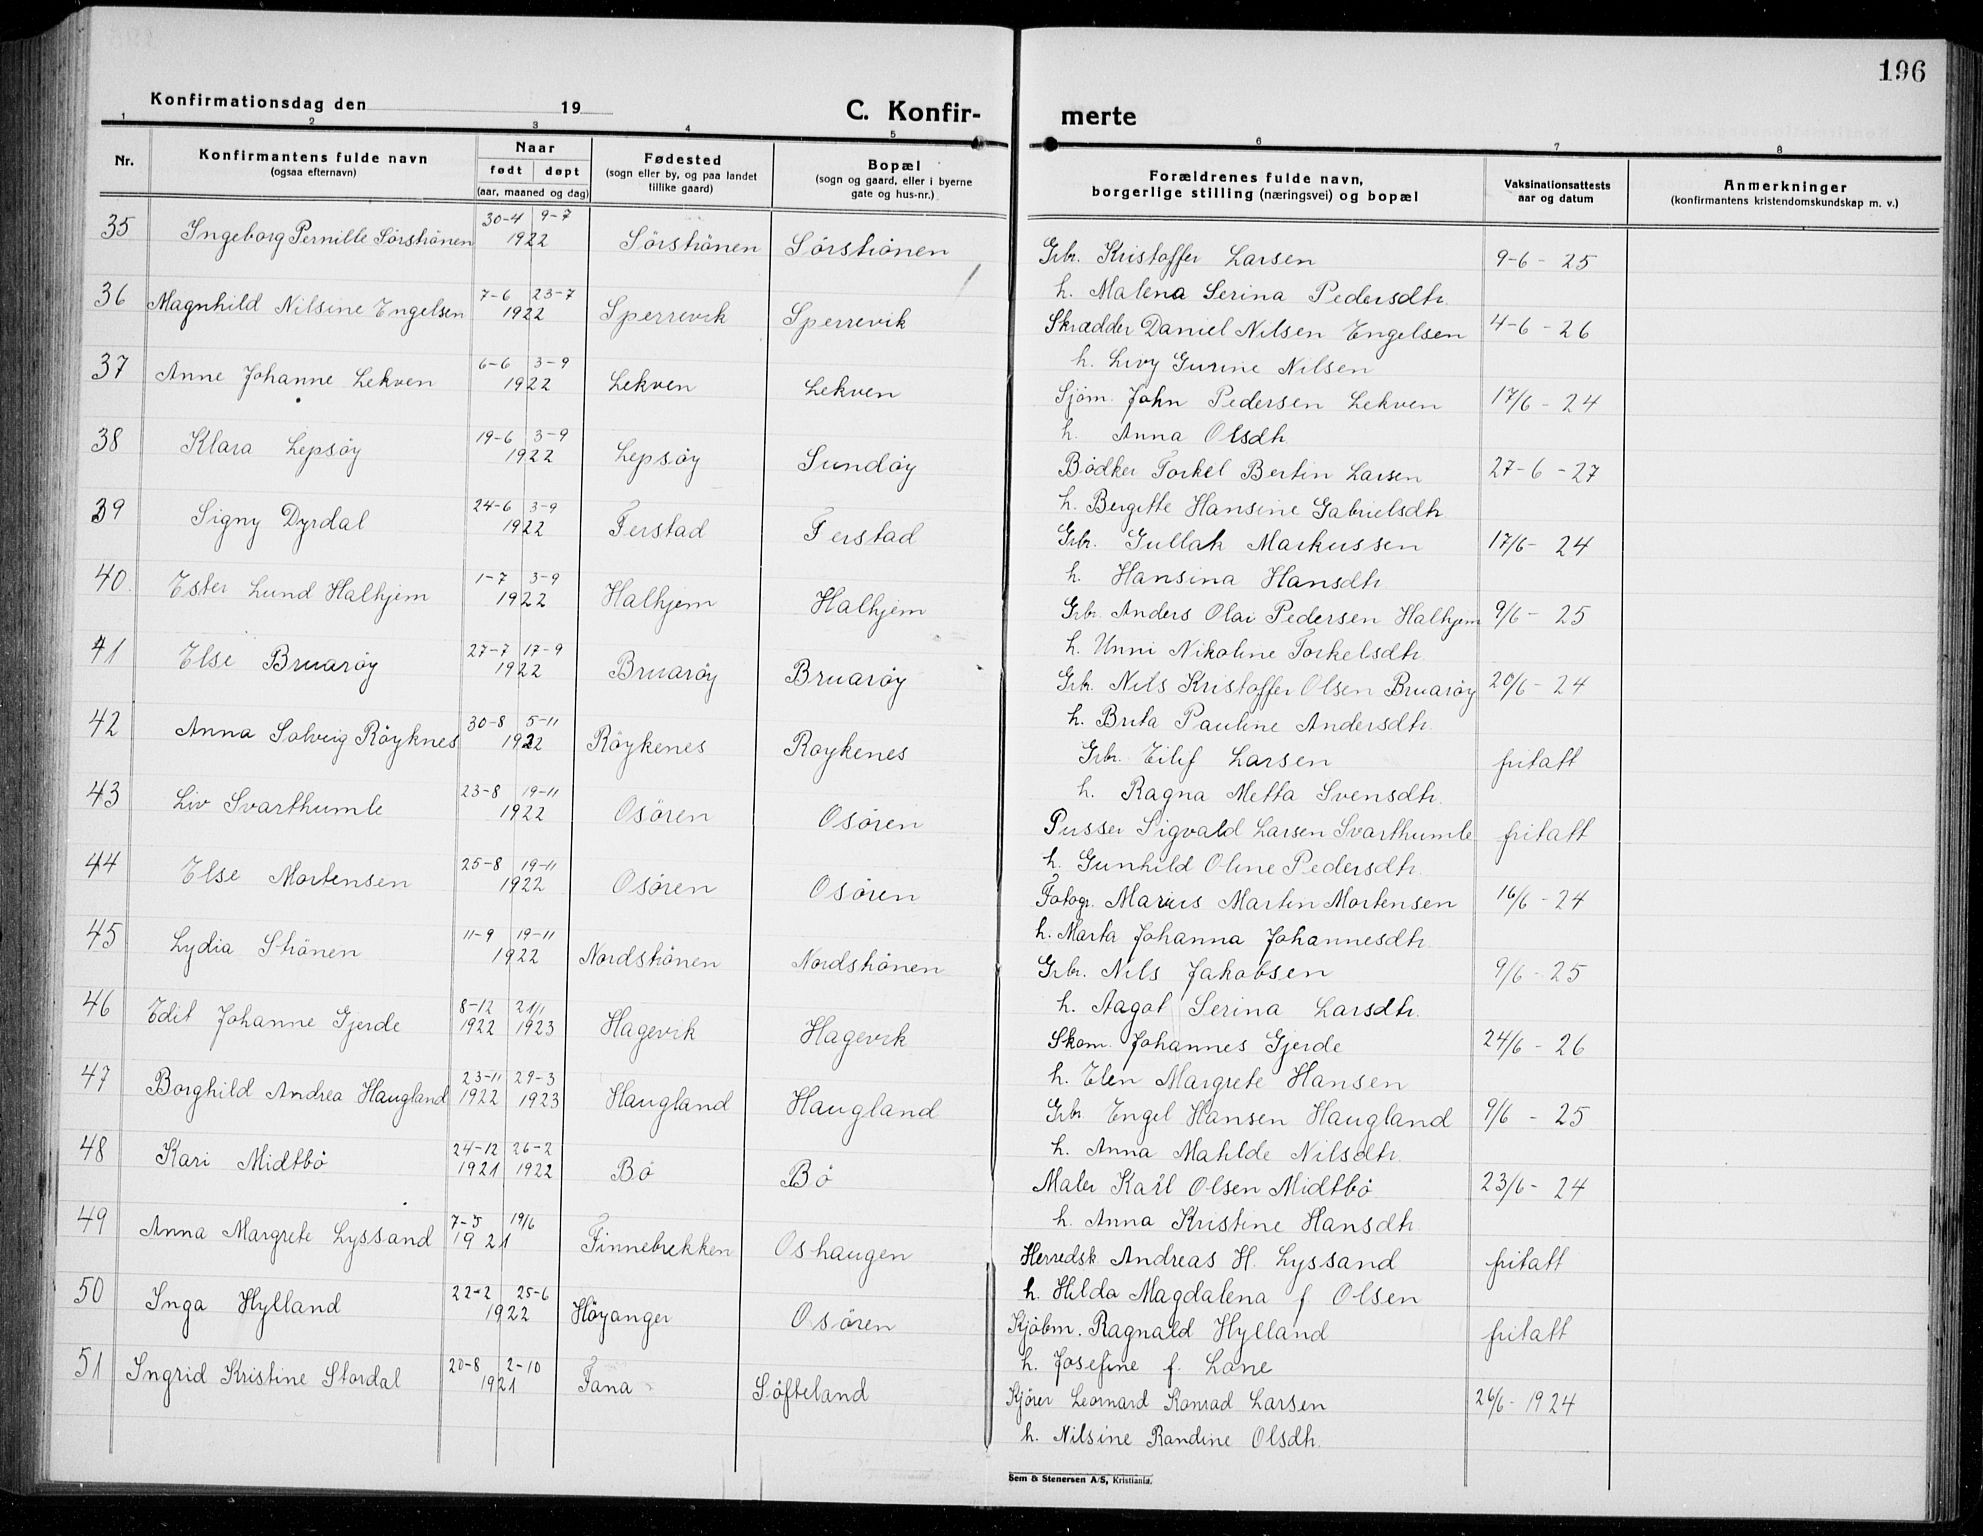 196
Konfirmationsdag den 19
C. Konfir- merte
1 2 3 4 5 6 7 8
Nr.
Konfirmantens fulde navn
(ogsaa efternavn)
Naar
født døpt
(aar, maaned og dag)
Fødested
(sogn eller by, og paa landet
tillike gaard)
Bopæl
(sogn og gaard, eller i byerne
gate og hus-nr.)
Forældrenes fulde navn,
borgerlige stilling (næringsvei) og bopæl
Vaksinationsattests
aar og datum
Anmerkninger
(konfirmantens kristendomskundskap m. v.)
35 Ingeborg Pernille Sørströnen 30-4 9-7 1922 Sörströnen Sörströnen Grbr. Kristoffer Larsen 9-6-25
h. Malena Serina Pedersdtr.
36 Magnhild Nilsine Engelsen 7-6 23-7 1922 Sperrevik Sperrevik Skrædder Daniel Nilsen Engelsen 4-6-26
h. Livy Gurine Nilsen
37 Anne Johanne Lekven 6-6 3-9 1922 Lekven Lekven Sjöm. John Pedersen Lekven 17/6-24
h. Anna Olsdtr
38 Klara Lepsöy 19-6 3-9 1922 Lepsöy Sundöy Bødker Torkel Bertin Larsen 27-6-27
h. Bergitte Hansine Gabrielsdtr
39 Signy Dyrdal 24-6 3-9 1922 Ferstad Ferstad Grbr. Gullak Markussen 17/6-24
h. Hansina Hansdtr
40 Ester Lund Halhjem 1-7 3-9 1922 Halhjem Halhjem Grbr. Anders Olai Pedersen Halhjem 9/6-25
h. Unni Nikoline Torkelsdtr.
41 Else Bruaröy 27-7 17-9 1922 Bruaröy Bruaröy Grbr. Nils Kristoffer Olsen Bruaröy 20/6-24
h. Brita Pauline Andersdtr.
42 Anna Solveig Röyknes 30-8 5-11 1922 Röykenes Roykenes Grbr. Eilif Larsen fritatt
h. Ragna Metta Svensdtr.
43 Liv Svarthumle 23-8 19-11 1922 Osören Osören Pusser Sigvald Larsen Svarthumle fritatt
h. Gunhild Oline Pedersdtr.
44 Else Mortensen 25-8 19-11 1922 Osören Osören Fotogr. Marius Martin Mortensen 16/6-24
h. Marta Johanna Johannesdtr.
45 Lydia Strönen 11-9 19-11 1922 Nordströnen Nordströnen Grbr. Nils Jakobsen 9/6-25
h. Aagot Serina Larsdtr.
46 Edit Johanne Gjerde 8-12 1922 21/1 1923 Hagevik Hagevik Skom. Johannes Gjerde 24/6-26
h. Elen Margrete Hansen
47 Borghild Andrea Haugland 23-11 1922 29-3 1923 Haugland Haugland Grbr Engel Hansen Haugland 9/6-25
h. Anna Matilde Nilsdtr.
48 Kari Midtbö 24-12 1921 26-2 1922 Bö Bö Maler Karl Olsen Midtbö 23/6-24
h. Anna Kristine Hansdtr.
49 Anna Margrete Lyssand 7-5 19/6 1921 Finnebrekken Oshaugen Herredsk Andreas H. Lyssand fritatt
h. Hilda Magdalena f Olsen
50 Inga Hylland 22-2 25-6 1922 Höyanger Osören Kjöbm. Ragnald Hylland fritatt
h. Josefine f. Lone
51 Ingrid Kristine Stordal 20-8 2-10 1921 Fana Söfteland Kjörer Leornard Konrad Larsen 26/6-1924
h. Nilsine Randine Olsdtr.
Sem & Stenersen A/S, Kristiania.